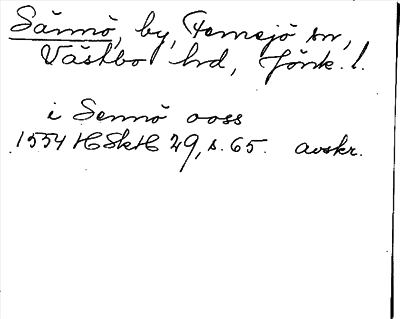 Sännö, by, Femsjö sn,
Västbo hd, Jönk. l.
i Sennö ooss
1554 HSkH 29, s. 65. avskr.